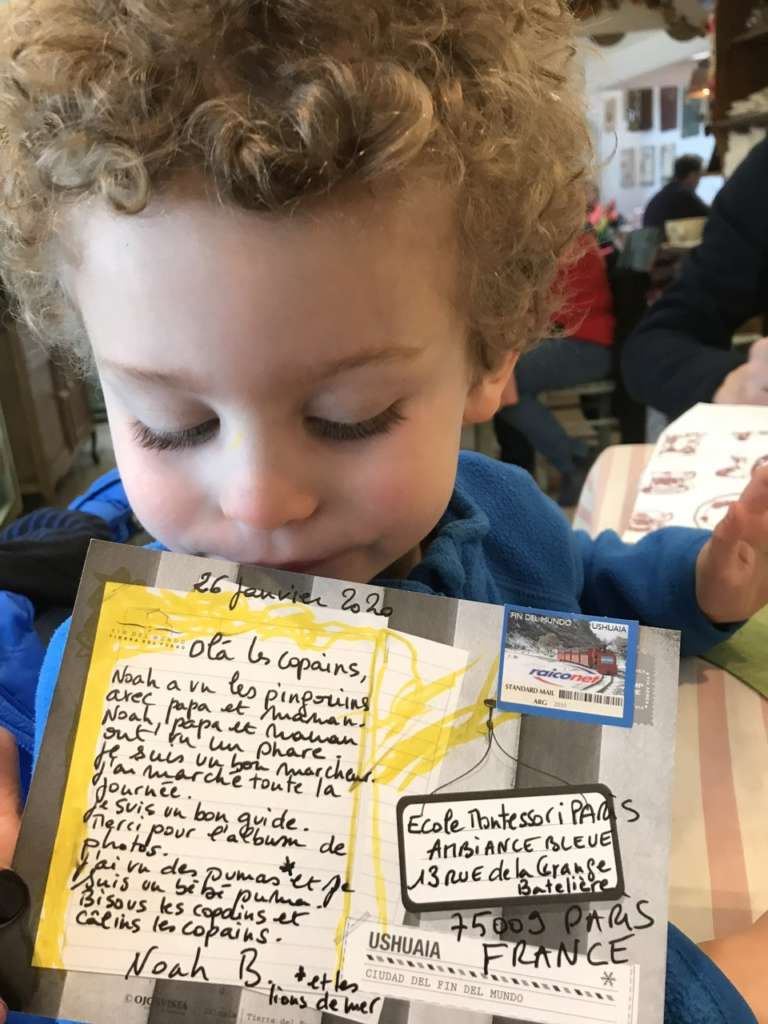 26 Janvier 2020
FIN DEL MUNDO
Olá les copains,
Noah a vu les pingouins
avec papa et maman.
Noah, papa et maman
ont vu un phare.
Je suis un bon marcheur.
J'ai marché toute la
journée.
Je suis un bon guide.
Merci pour l'album de
photos.
J'ai vu des pumas* et je
suis un bébé puma.
Bisous les copains et
câlins les copains.
Noah B.
*et les
lions de mer
FIN DEL MUNDO USHUAIA
raiconet
STANDARD MAIL
ARG
Ecole Montessori PARIS
AMBIANCE BLEUE
13 RUE de la Grange
Batelière
75009 PARIS
FRANCE
USHUAIA
CIUDAD DEL FIN DEL MUNDO